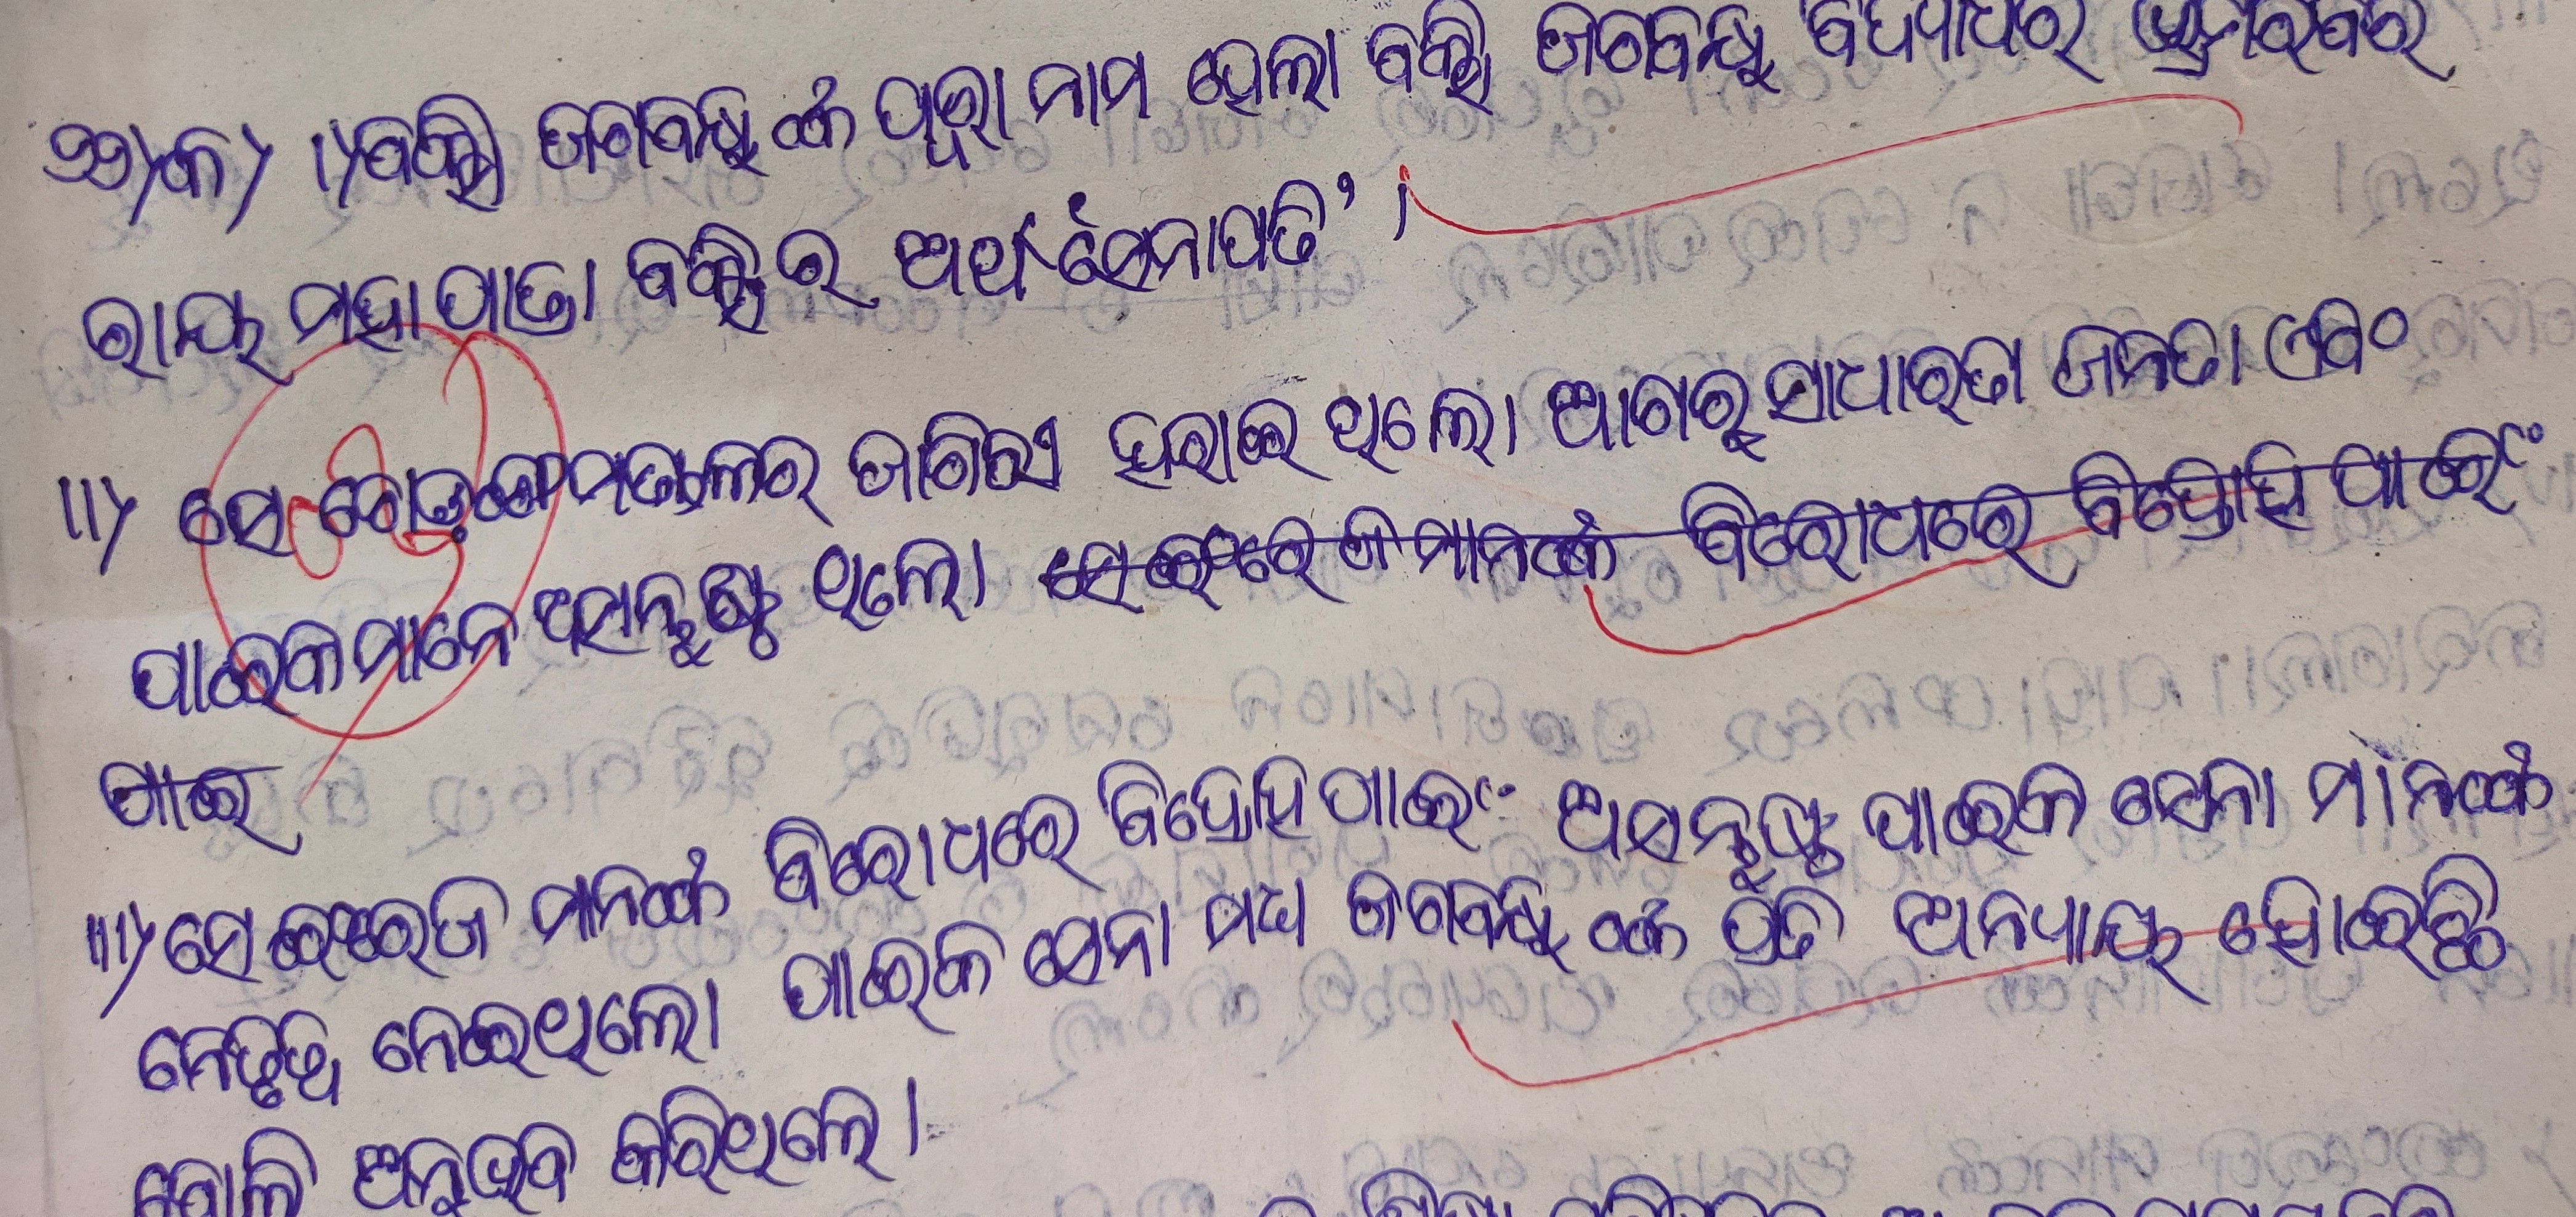 ୨୭)କ) ।)ବକ୍ସି ଜଗବନ୍ଧୁ ଙ୍କ ପୂରା ନାମ ହେଲା ବକ୍ସି ଜଗବନ୍ଧୁ ବିଦ୍ୟାଧର ଭ୍ରମରବର
ରାୟ ମହାପାତ୍ର। ବକ୍ସି ର ଅର୍ଥ 'ସେନାପତି' ।
।।) ସେ ରୋଡ଼ଙ୍ଗ ମହାଲର ଜାଗିରୀ ହରାଇ ଥିଲେ। ଆଗରୁ ସାଧାରଣ ଜନତା ଏବଂ
ପାଇକମାନେ ଅସନ୍ତୁଷ୍ଟ ଥିଲେ। ସେ ଇଂରେଜ ମାନଙ୍କ ବିରୋଧରେ ବିଦ୍ରୋହି ପାଇଁ
ପାଇ
।।।) ସେ ଇଂରେଜ ମାନଙ୍କ ବିରୋଧରେ ବିଦ୍ରୋହି ପାଇଁ ଅସନ୍ତୁଷ୍ଟ ପାଇକ ସେନା ମାନଙ୍କ
ନେତୃତ୍ୱ ନେଇଥିଲେ। ପାଇକ ସେନା ମଧ୍ୟ ଜଗବନ୍ଧୁ ଙ୍କ ପ୍ରତି ଅନ୍ୟାୟ ହୋଇଛି
ବୋଲି ଅନୁଭବ କରିଥିଲେ।